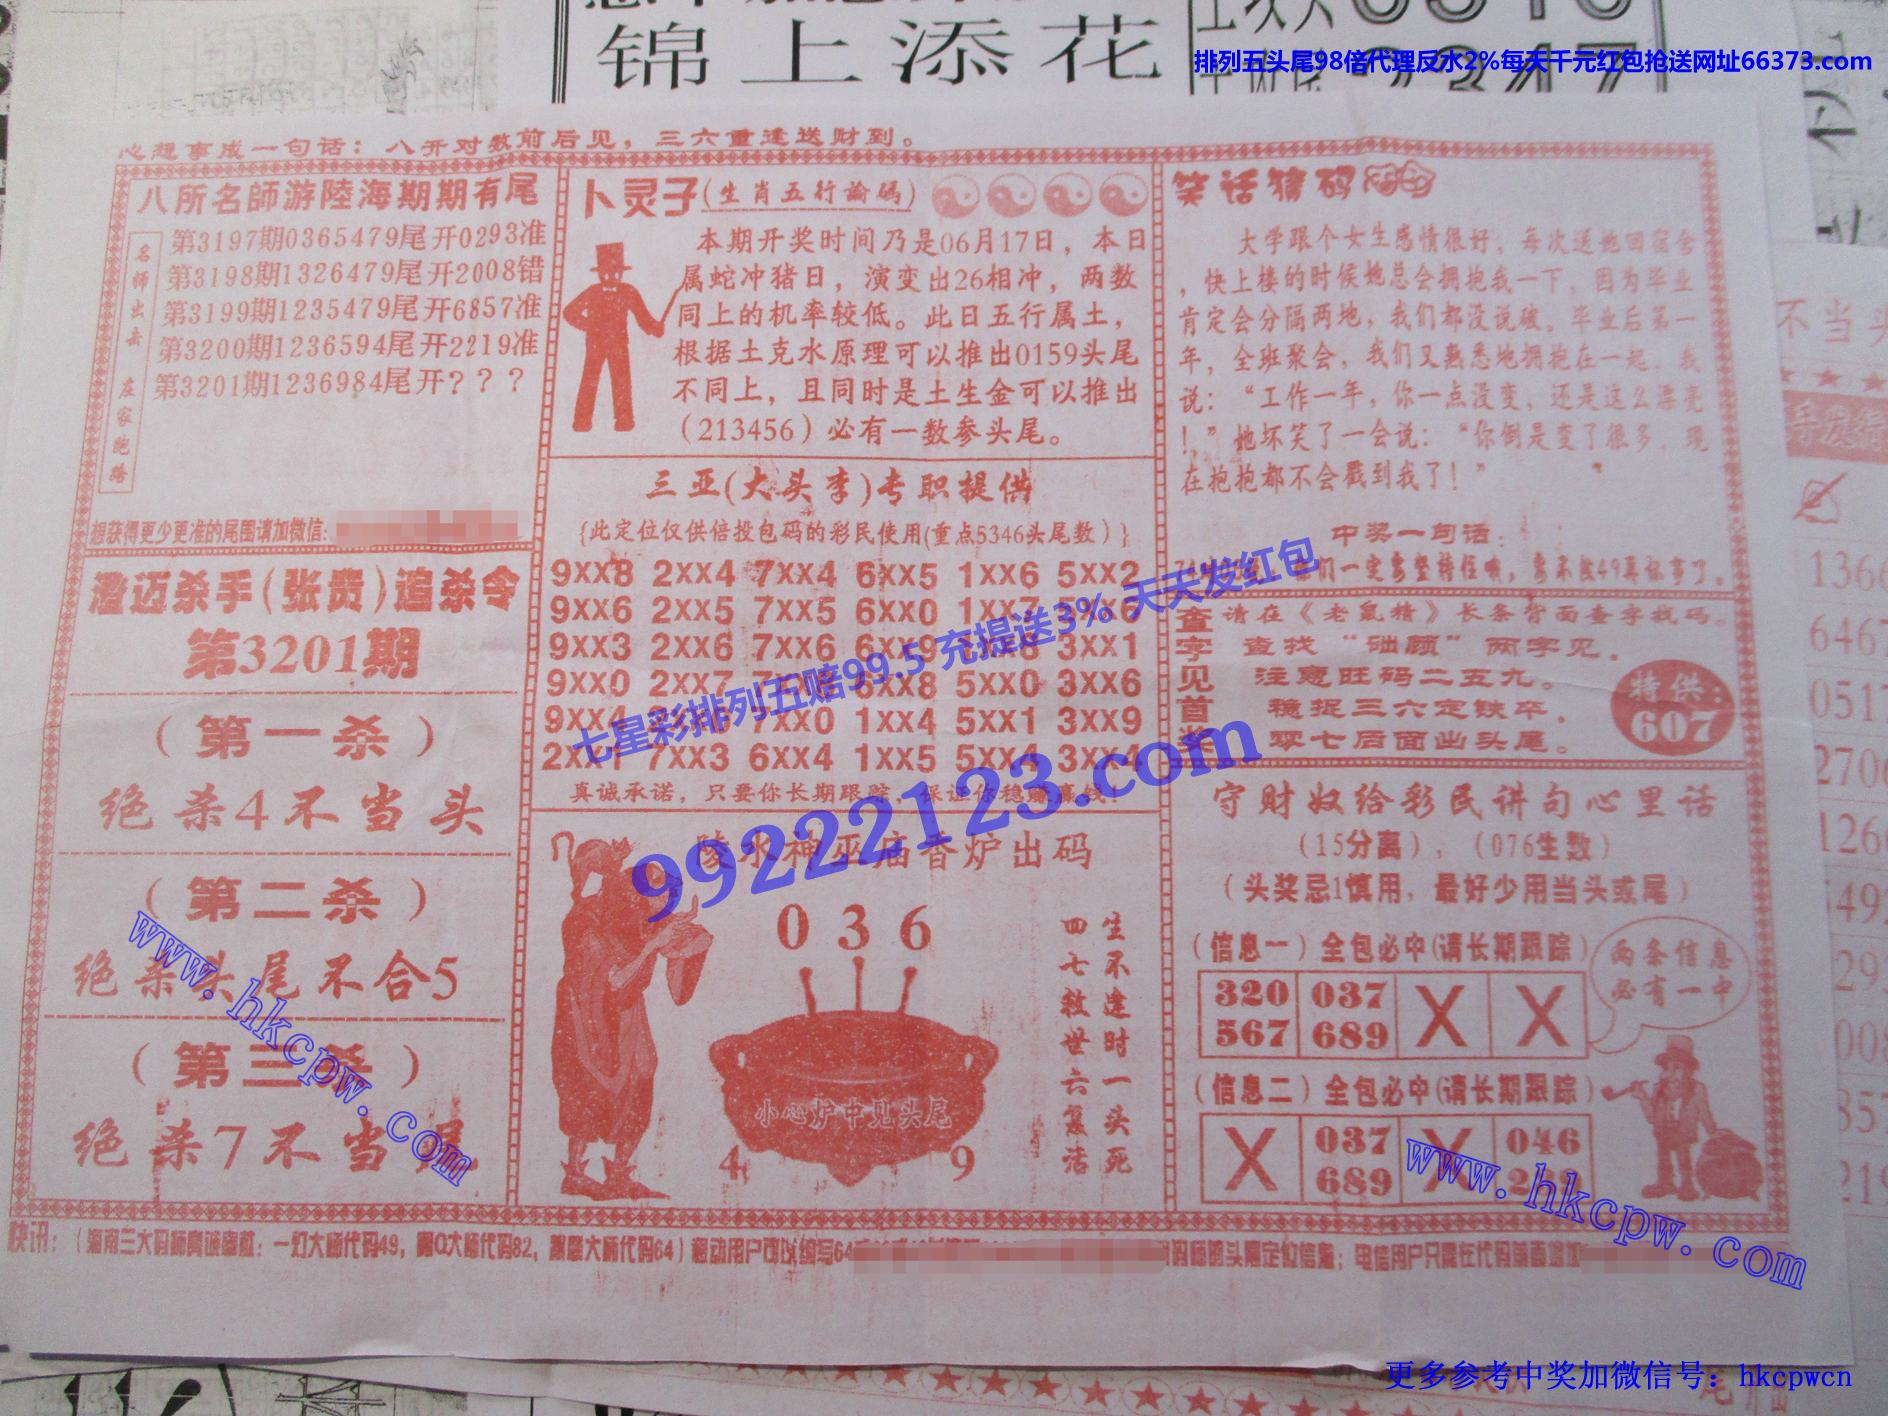 锦上添花
排列五头尾98倍代理反水2%每天千元红包抢送网址66373.com
心想事成一句话：八开对数前后见，三六重逢送财到。
八所名師游陸海期期有尾
名师出击 庄家跑路
第3197期0365479尾开0293准
第3198期1326479尾开2008错
第3199期1235479尾开6857准
第3200期1236594尾开2219准
第3201期1236984尾开？？？
想获得更少更准的尾围请加微信:
澄迈杀手(张贵)追杀令
第3201期
（第一杀）
绝杀4不当头
（第二杀）
绝杀头尾不合5
（第三杀）
绝杀7不当尾
卜灵子(生肖五行論碼)
本期开奖时间乃是06月17日，本日
属蛇冲猪日，演变出26相冲，两数
同上的机率较低。此日五行属土，
根据土克水原理可以推出0159头尾
不同上，且同时是土生金可以推出
（213456）必有一数参头尾。
三亚(大头李)专职提供
{此定位仅供倍投包码的彩民使用(重点5346头尾数）}
9XX8 2XX4 7XX4 6XX5 1XX6 5XX2
9XX6 2XX5 7XX5 6XX0 1XX7 5XX6
9XX3 2XX6 7XX6 6XX9 1XX8 3XX1
9XX0 2XX7 6XX8 5XX0 3XX6
9XX4 7XX0 1XX4 5XX1 3XX9
2XX1 7XX3 6XX4 1XX5 5XX4 3XX4
真诚承诺，只要你长期跟踪，保证你稳赚赢钱！
陵水神巫庙香炉出码
036
生不逢时一头死
四七救世六复活
小心炉中见头尾
4 9
笑话猜码
大学跟个女生感情很好，每次送她回宿舍
，快上楼的时候她总会拥抱我一下，因为毕业
肯定会分隔两地，我们都没说破。毕业后第一
年，全班聚会，我们又熟悉地拥抱在一起，我
说：“工作一年，你一点没变，还是这么漂亮
！”她坏笑了一会说：“你倒是变了很多，现
在抱抱都不会戳到我了！”
中奖一句话：
们一定要坚持住啊，要不散49再坏事了。
查字见首奖
请在《老鼠精》长条背面查字找码。
查找“础顾”两字见，
注意旺码二五九。
稳捉三六定铁卒，
零七后面出头尾。
特供：
607
守财奴给彩民讲句心里话
（15分离），（076生数）
（头奖忌1慎用，最好少用当头或尾）
（信息一）全包必中(请长期跟踪）
320 037 X X
567 689
两条信息
必有一中
（信息二）全包必中(请长期跟踪）
X 037 X 046
689
快讯：（海南三大码师真诚奉献：一灯大师代码49，周Q大师代码82，
代码64）移动用户可以编写64
码师的头尾定位信息；电信用户只需在代码前面增加
七星彩排列五赔99.5 充提送3% 天天发红包
99222123.com
www.hkcpw.com
www.hkcpw.com
更多参考中奖加微信号：hkcpwcn